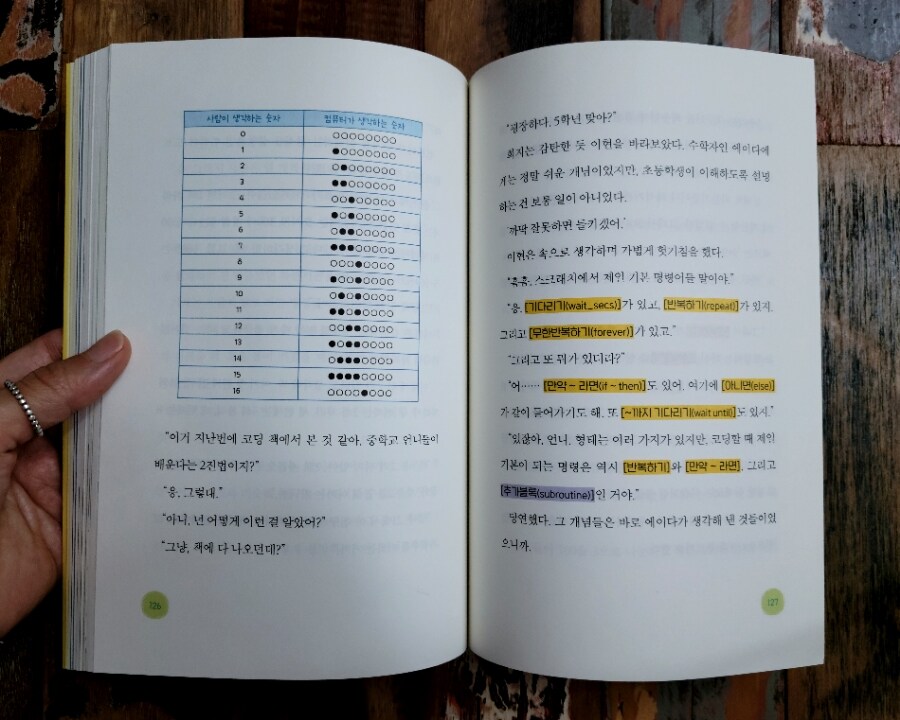 사람이 생각하는 숫자 컴퓨터가 생각하는 숫자
0 ○○○○○○○○
1 ●○○○○○○○
2 ○●○○○○○○
3 ●●○○○○○○
4 ○○●○○○○○
5 ●○●○○○○○
6 ○●●○○○○○
7 ●●●○○○○○
8 ○○○●○○○○
9 ●○○●○○○○
10 ○●○●○○○○
11 ●●○●○○○○
12 ○○●●○○○○
13 ●○●●○○○○
14 ○●●●○○○○
15 ●●●●○○○○
16 ○○○○●○○○
"이거 지난번에 코딩 책에서 본 것 같아. 중학교 언니들이
배운다는 2진법이지?"
"응, 그렇대."
"아니, 넌 어떻게 이런 걸 알았어?"
"그냥, 책에 다 나오던데?"
126
"굉장하다. 5학년 맞아?"
희지는 감탄한 듯 이현을 바라보았다. 수학자인 에이다에
게는 정말 쉬운 개념이었지만, 초등학생이 이해하도록 설명
하는 건 보통 일이 아니었다.
'까딱 잘못하면 들키겠어.'
이현은 속으로 생각하며 가볍게 헛기침을 했다.
"흠흠, 스크래치에서 제일 기본 명령어들 말이야."
"응. [기다리기(wait_secs)]가 있고, [반복하기(repeat)]가 있지.
그리고 [무한반복하기(forever)]가 있고."
"그리고 또 뭐가 있더라?"
"어…… [만약 ~ 라면(if ~ then)]도 있어. 여기에 [아니면(else)]
가 같이 들어가기도 해. 또 [~까지 기다리기(wait until)]도 있지."
"있잖아, 언니. 형태는 여러 가지가 있지만, 코딩할 때 제일
기본이 되는 명령은 역시 [반복하기]와 [만약 ~ 라면], 그리고
[추가블록(subroutine)]인 거야."
당연했다. 그 개념들은 바로 에이다가 생각해 낸 것들이었
으니까.
127